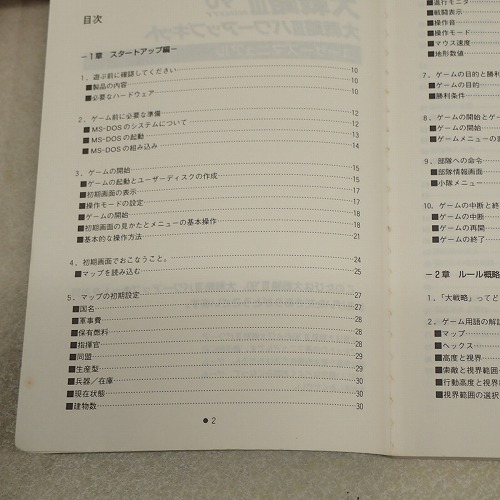 目次
－1章 スタートアップ編－
1．遊ぶ前に確認してください 10
■製品の内容 10
■必要なハードウェア 10
2．ゲーム前に必要な準備 12
■MS-DOSのシステムについて 12
■MS-DOSの起動 13
■MS-DOSの組み込み 14
3．ゲームの開始 15
■ゲームの起動とユーザーディスクの作成 15
■初期画面の表示 17
■操作モードの設定 17
■ゲームの開始 18
■初期画面の見かたとメニューの基本操作 18
■基本的な操作方法 21
4．初期画面でおこなうこと。 24
■マップを読み込む 25
5．マップの初期設定 27
■国名 27
■軍事費 28
■保有燃料 28
■指揮官 28
■同盟 29
■生産型 29
■兵器／在庫 30
■現在状態 30
■建物数 30
●2
■進行モニタ
■戦闘表示
■操作音
■操作モード
■マウス速度
■地形数値
7．ゲームの目的と勝利
■ゲームの目的
■勝利条件
8．ゲームの開始とゲー
■ゲームの開始
■ゲームメニューの
9．部隊への命令
■部隊情報画面
■小隊メニュー
10．ゲームの中断と終
■ゲームの中断
■ゲームの再開
■ゲームの終了
－2章 ルール概略
1．「大戦略」って
2．ゲーム用語の解説
■マップ
■ヘックス
■高度と視界
■索敵と視界範囲
■行動高度と視界
■視界範囲の選択